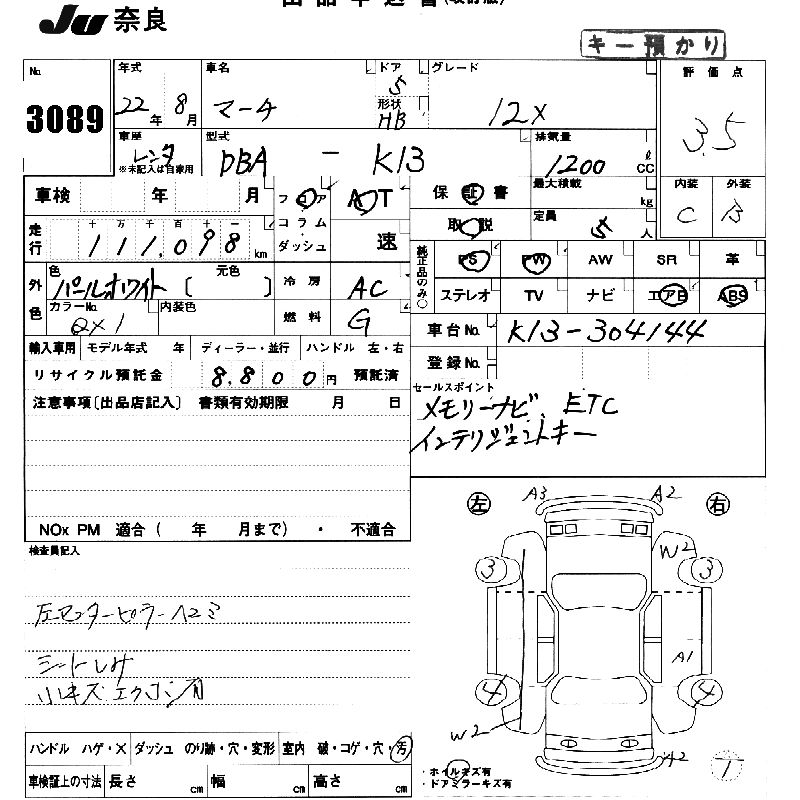 Ju 奈良
キー預かり
No. 年式 車名 ドア グレード 評価点
3089 22年 8月 マーチ 5 12X 3.5
形状 HB
車歴 型式 排気量
レンタ DBA - K13 1200 ℓ CC
※未記入は自家用
内装 外装
C B
車検 年 月 フロア AT 保証書 最大積載 kg
走行 十 万 千 百 十 一 コラム 取説 定員 5 人
111,098 km ダッシュ 速
外色 色 元色 冷房 AC 純正品のみ○ PS PW AW SR 革
パールホワイト [ ]
カラーNo. 内装色 燃料 G ステレオ TV ナビ エアB ABS
QX1
輸入車用 モデル年式 年 ディーラー・並行 ハンドル 左・右 車台No. K13-304144
リサイクル預託金 8,800円 預託済 登録No.
注意事項〔出品店記入〕 書類有効期限 月 日 セールスポイント
メモリーナビ、ETC
インテリジェントキー
NOx PM 適合 ( 年 月まで) ・ 不適合
検査員記入
左センターピラーヘコミ
シートしみ
小キズエクボ有
左 A3 A2 右
W2
3 3
A1
4 4
W2 A2
T
・ホイルキズ有
・ドアミラーキズ有
ハンドル ハゲ・× ダッシュ のり跡・穴・変形 室内 破・コゲ・穴・汚
車検証上の寸法 長さ cm 幅 cm 高さ cm